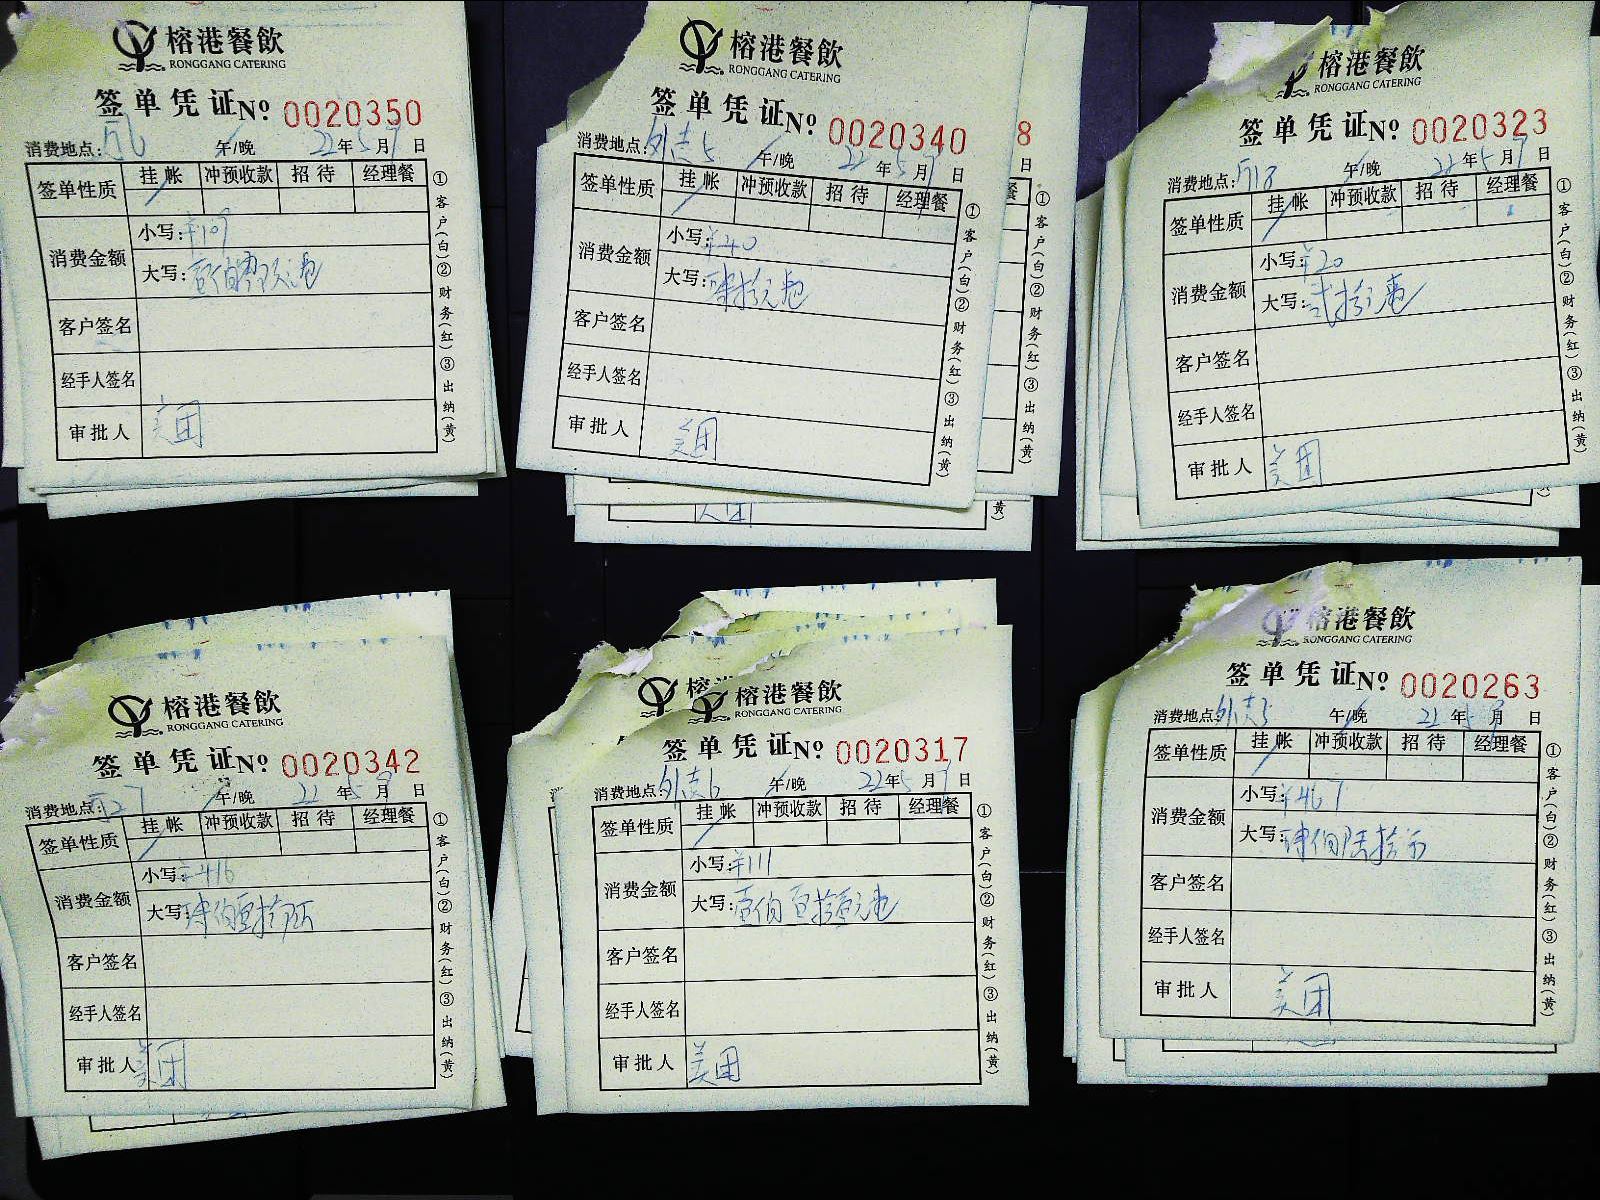 榕港餐飲
RONGGANG CATERING
签单凭证 No 0020350
消费地点: 午/晚 22年5月9日
签单性质 挂帐 冲预收款 招待 经理餐
消费金额 小写: ¥109
大写: 壹佰零玖元
客户签名
经手人签名
审批人 美团
①客户(白)②财务(红)③出纳(黄)
榕港餐飲
RONGGANG CATERING
签单凭证 No 0020340
消费地点: 5 午/晚 22年5月9日
签单性质 挂帐 冲预收款 招待 经理餐
消费金额 小写: ¥40
大写: 肆拾元
客户签名
经手人签名
审批人 美团
①客户(白)②财务(红)③出纳(黄)
8
日
餐
①客户(白)②财务(红)③出纳(黄)
美团
黄)
榕港餐飲
RONGGANG CATERING
签单凭证 No 0020323
消费地点: 午/晚 22年5月9日
签单性质 挂帐 冲预收款 招待 经理餐
消费金额 小写: ¥20
大写: 贰拾元
客户签名
经手人签名
审批人 美团
①客户(白)②财务(红)③出纳(黄)
榕港餐飲
RONGGANG CATERING
签单凭证 No 0020342
消费地点: 午/晚 22年5月9日
签单性质 挂帐 冲预收款 招待 经理餐
消费金额 小写: ¥416
大写: 肆佰壹拾
客户签名
经手人签名
审批人 美团
①客户(白)②财务(红)③出纳(黄)
榕港
榕港餐飲
RONGGANG CATERING
签单凭证 No 0020317
消费地点: 6 午/晚 22年5月9日
签单性质 挂帐 冲预收款 招待 经理餐
消费金额 小写: ¥111
大写: 壹佰壹拾壹元
客户签名
经手人签名
审批人 美团
①客户(白)②财务(红)③出纳(黄)
榕港餐飲
RONGGANG CATERING
签单凭证 No 0020263
消费地点: 午/晚 22年5月9日
签单性质 挂帐 冲预收款 招待 经理餐
消费金额 小写: ¥467
大写: 肆佰陆拾
客户签名
经手人签名
审批人 美团
①客户(白)②财务(红)③出纳(黄)